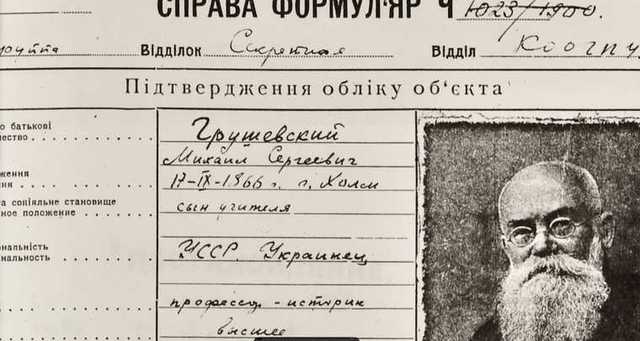 СПРАВА ФОРМУЛ'ЯР Ч 1023/1900.
Відділок Секретная Відділ
Підтвердження обліку об'єкта
о батькові
чество
Грушевский
Михаил Сергеевич
ження
ния
17-IX-1866 г. г. Холм
та соціяльне становище
ное положение
сын учителя
ональність
нальность
УССР. Украинец
профессор - историк
высшее